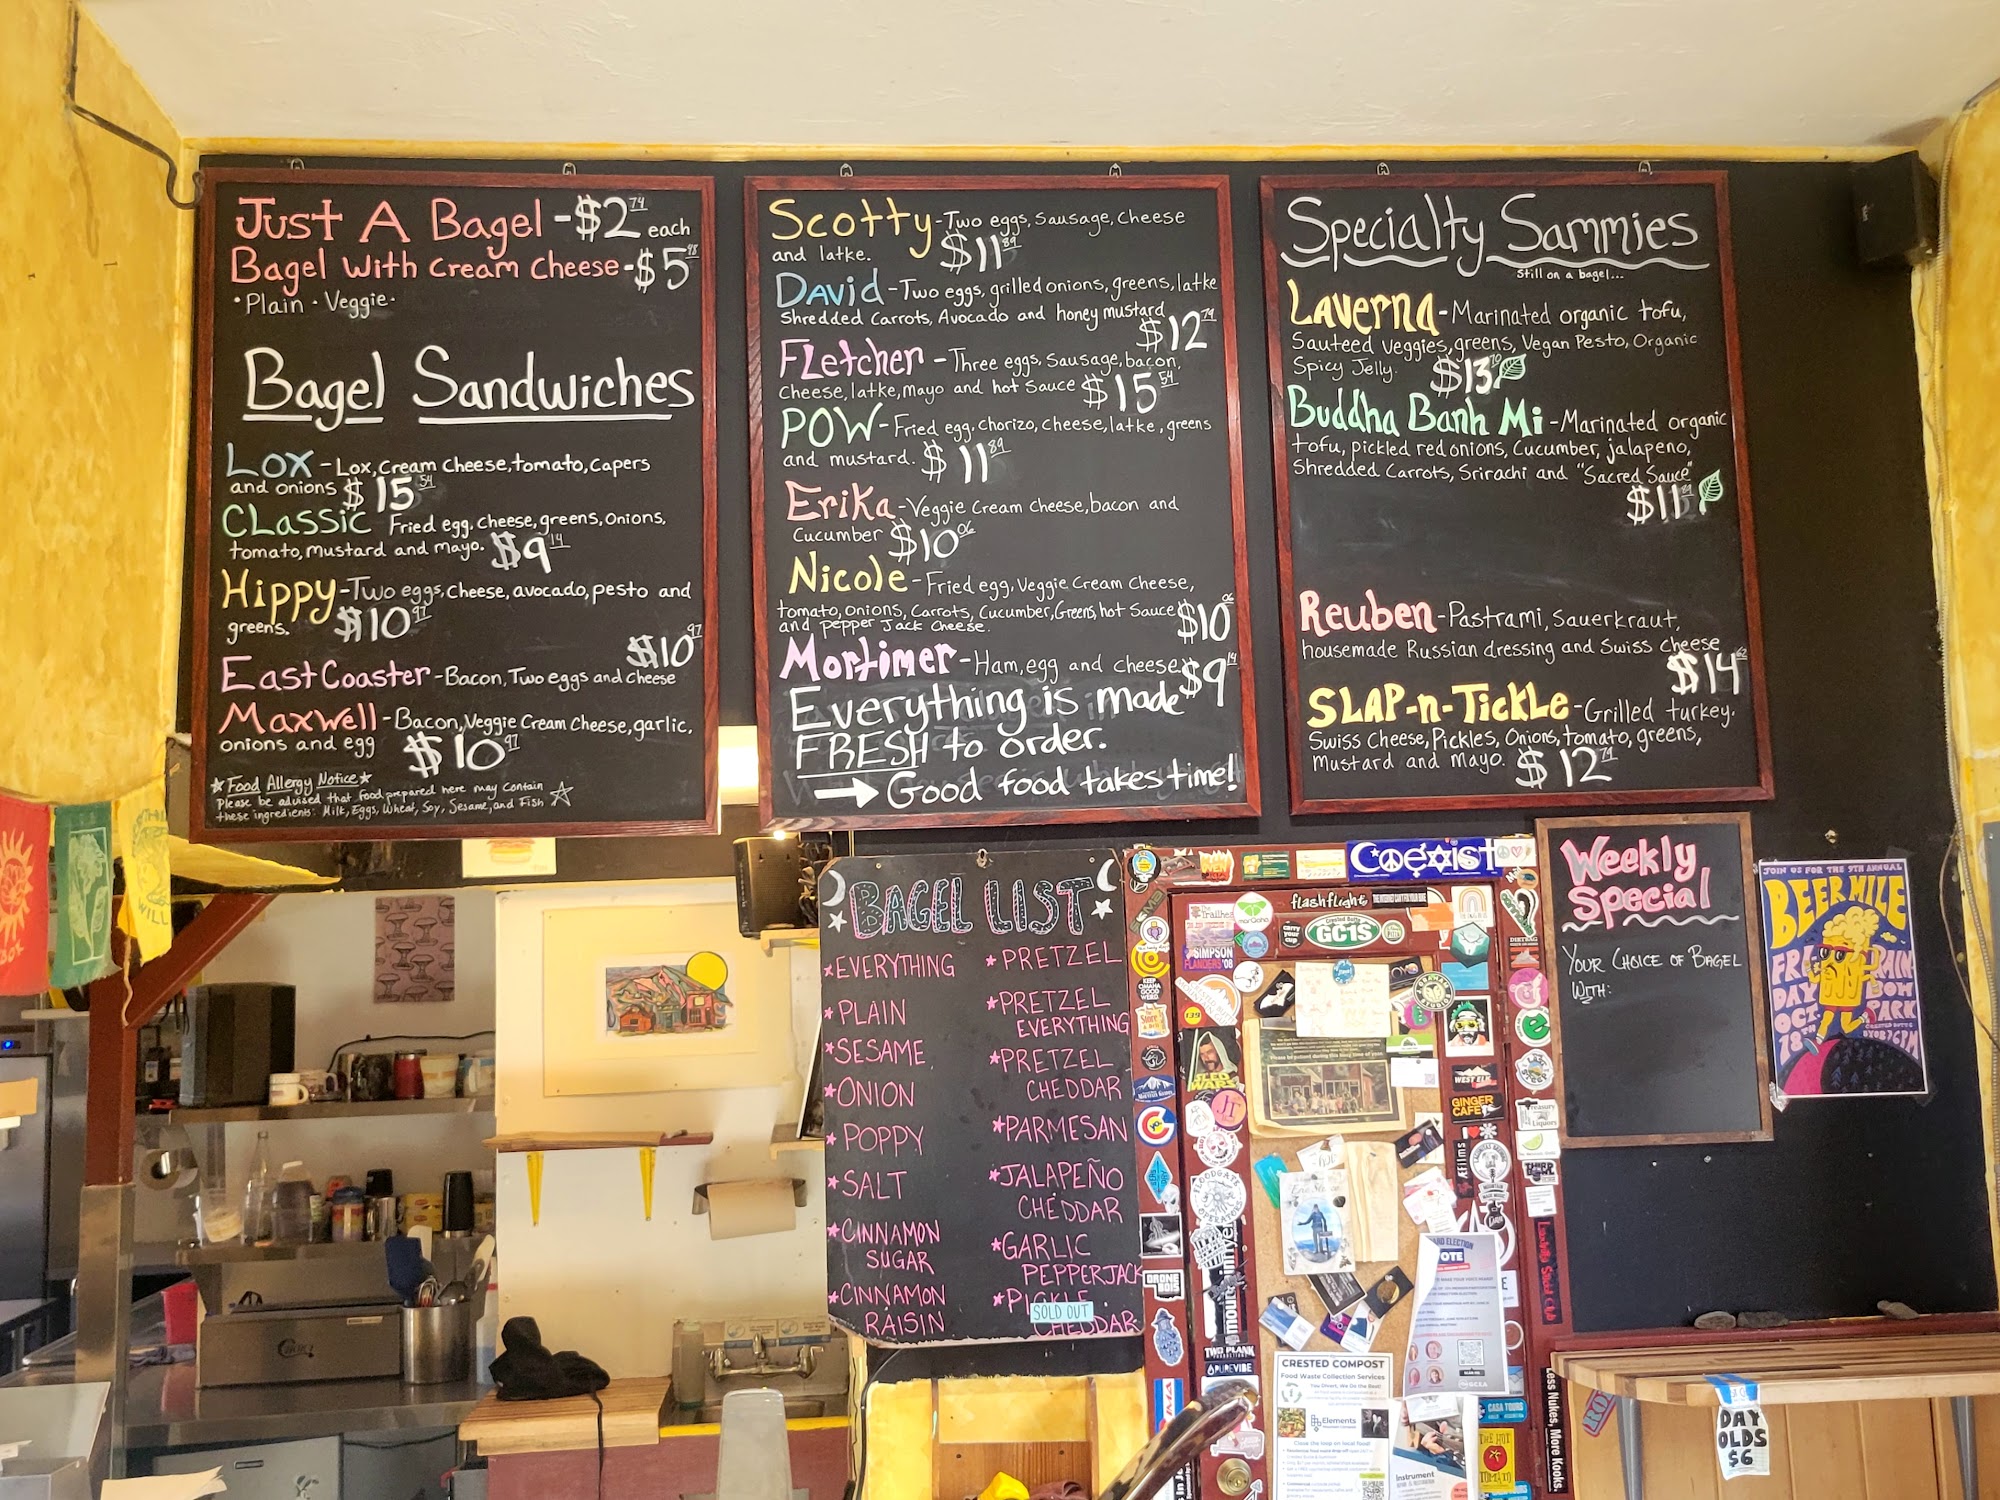 Just A Bagel - $2 74 each
Bagel with cream cheese - $5 98
· Plain · Veggie ·
Bagel Sandwiches
Lox - Lox, Cream cheese, tomato, capers
and onions $15 54
Classic Fried egg, cheese, greens, onions,
tomato, mustard and mayo. $9 14
Hippy - Two eggs, cheese, avocado, pesto and
greens. $10 97
$10 97
East Coaster - Bacon, Two eggs and cheese
Maxwell - Bacon, Veggie Cream Cheese, garlic,
onions and egg $10 97
Food Allergy Notice
Please be advised that food prepared here may contain
these ingredients: Milk, Eggs, Wheat, Soy, Sesame, and Fish
Scotty - Two eggs, sausage, cheese
and latke. $11 89
David - Two eggs, grilled onions, greens, latke
Shredded Carrots, Avocado and honey mustard
$12 79
Fletcher - Three eggs, sausage, bacon,
cheese, latke, mayo and hot sauce $15 54
POW - Fried egg, chorizo, cheese, latke, greens
and mustard. $11 89
Erika - Veggie Cream Cheese, bacon and
Cucumber $10 06
Nicole - Fried egg, Veggie Cream Cheese,
tomato, onions, Carrots, Cucumber, Greens, hot sauce $10 06
and pepper Jack Cheese.
Mortimer - Ham, egg and cheese $9 14
Everything is made
FRESH to order.
→ Good food takes time!
Specialty Sammies
Still on a bagel...
Laverna - Marinated organic tofu,
Sauteed veggies, greens, Vegan Pesto, Organic
Spicy Jelly. $13 70
Buddha Banh Mi - Marinated organic
tofu, pickled red onions, Cucumber, jalapeno,
Shredded Carrots, Srirachi and "Sacred Sauce"
$11 89
Reuben - Pastrami, Sauerkraut,
housemade Russian dressing and Swiss cheese
$14 62
SLAP-n-Tickle - Grilled turkey.
Swiss Cheese, Pickles, Onions, tomato, greens,
Mustard and Mayo. $12 79
BAGEL LIST
EVERYTHING
PLAIN
SESAME
ONION
POPPY
SALT
CINNAMON
SUGAR
CINNAMON
RAISIN
PRETZEL
PRETZEL
EVERYTHING
PRETZEL
CHEDDAR
PARMESAN
JALAPEÑO
CHEDDAR
GARLIC
PEPPERJACK
PICKLE
SOLD OUT
CHEDDAR
COEXIST
flashflight
GC1S
SIMPSON
FLANDERS '08
KEEP
OMAHA
GOOD
WEIRD
SLED
WARS
WEST ELK
GINGER
CAFE
FLOODGATE
OPERATOR
DRONE
BOIS
TWO PLANK
PUREVIBE
VOTE
CRESTED COMPOST
Food Waste Collection Services
You Divert, We Do the Rest!
Elements
Close the loop on local food!
Treasury
Liquors
CASA TOURS
THE HOT
TOMATO
instrument
Less Nukes, More Kooks.
Weekly
Special
YOUR CHOICE OF BAGEL
WITH:
JOIN US FOR THE 9TH ANNUAL
BEER MILE
FRIDAY
OCT.
18TH
RAINBOW
PARK
CRESTED BUTTE
BYOB 6PM
DAY
OLDS
$6